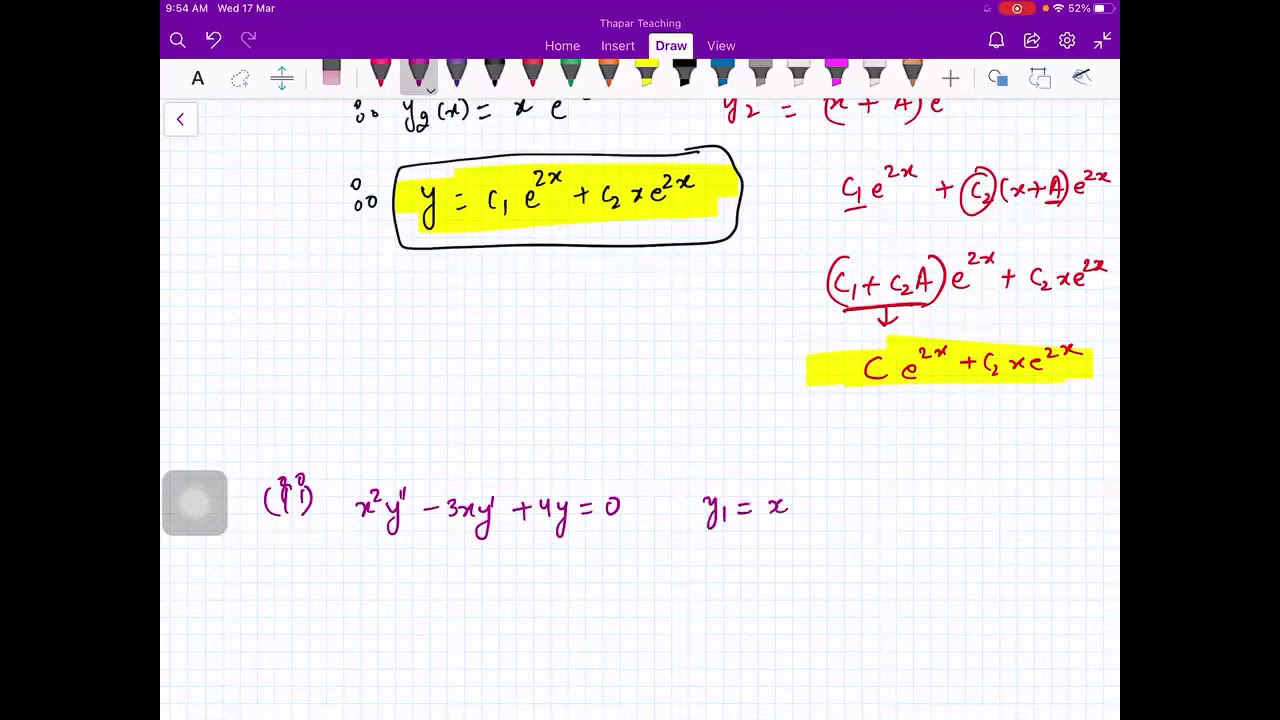 9:54 AM Wed 17 Mar
52%
Thapar Teaching
Home Insert Draw View
A
∴ y₂(x) = x e
y₂ = (x + A)e
∴ y = c₁ e^{2x} + c₂ x e^{2x}
c₁ e^{2x} + c₂ (x + A) e^{2x}
(c₁ + c₂A) e^{2x} + c₂ x e^{2x}
↓
C e^{2x} + c₂ x e^{2x}
(ii) x² y'' − 3xy' + 4y = 0 y₁ = x